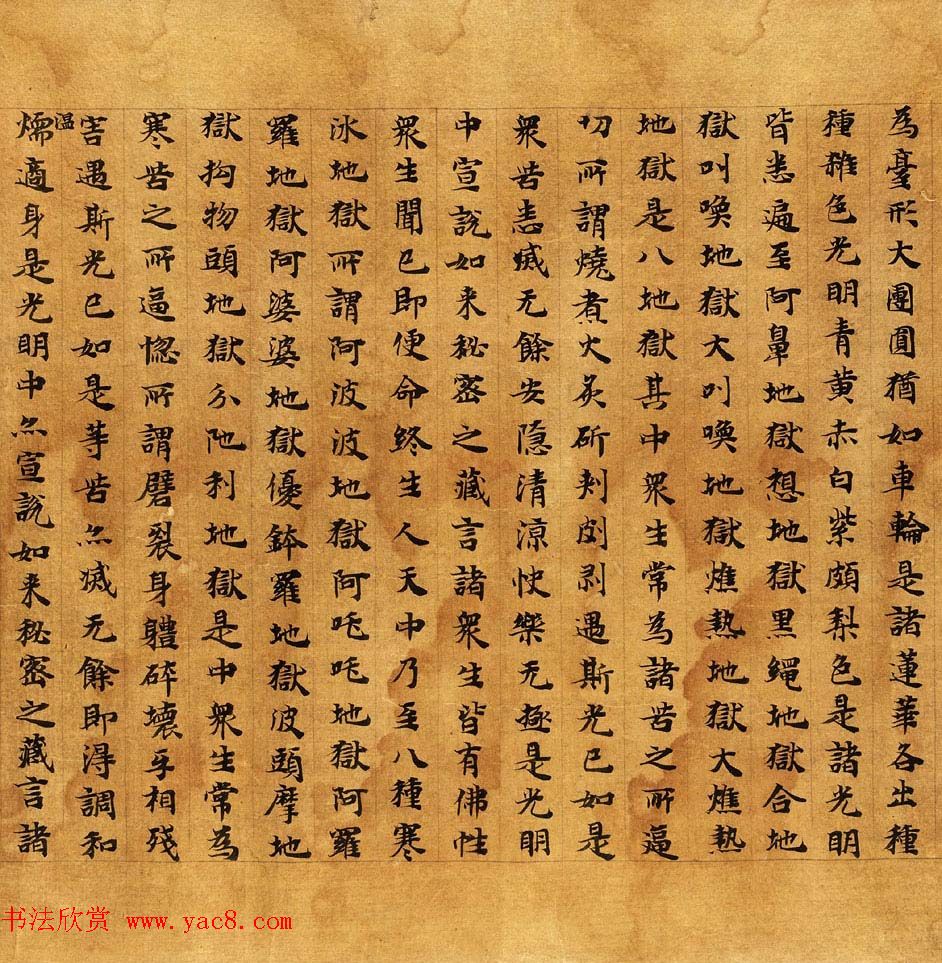 為臺形大團圓猶如車輪是諸蓮華各出種
種雜色光明青黄赤白紫頗梨色是諸光明
皆悉遍至阿鼻地獄想地獄黑繩地獄合地
獄叫喚地獄大叫喚地獄燋熱地獄大燋熱
地獄是八地獄其中衆生常為諸苦之所逼
切所謂燒煮火炙斫刾剥遇斯光已如是
衆苦悉滅无餘安隠清涼快樂无極是光明
中宣說如来秘密之藏言諸衆生皆有佛性
衆生聞已即便命終生人天中乃至八種寒
氷地獄所謂阿波波地獄阿吒吒地獄阿羅
羅地獄阿婆婆地獄優鉢羅地獄波頭摩地
獄拘物頭地獄分陁利地獄是中衆生常為
寒苦之所逼惱所謂劈裂身體碎壞㸦相殘
害遇斯光已如是等苦亦滅无餘即得調和
温煗適身是光明中亦宣說如来秘密之藏言諸
书法欣赏 www.yac8.com